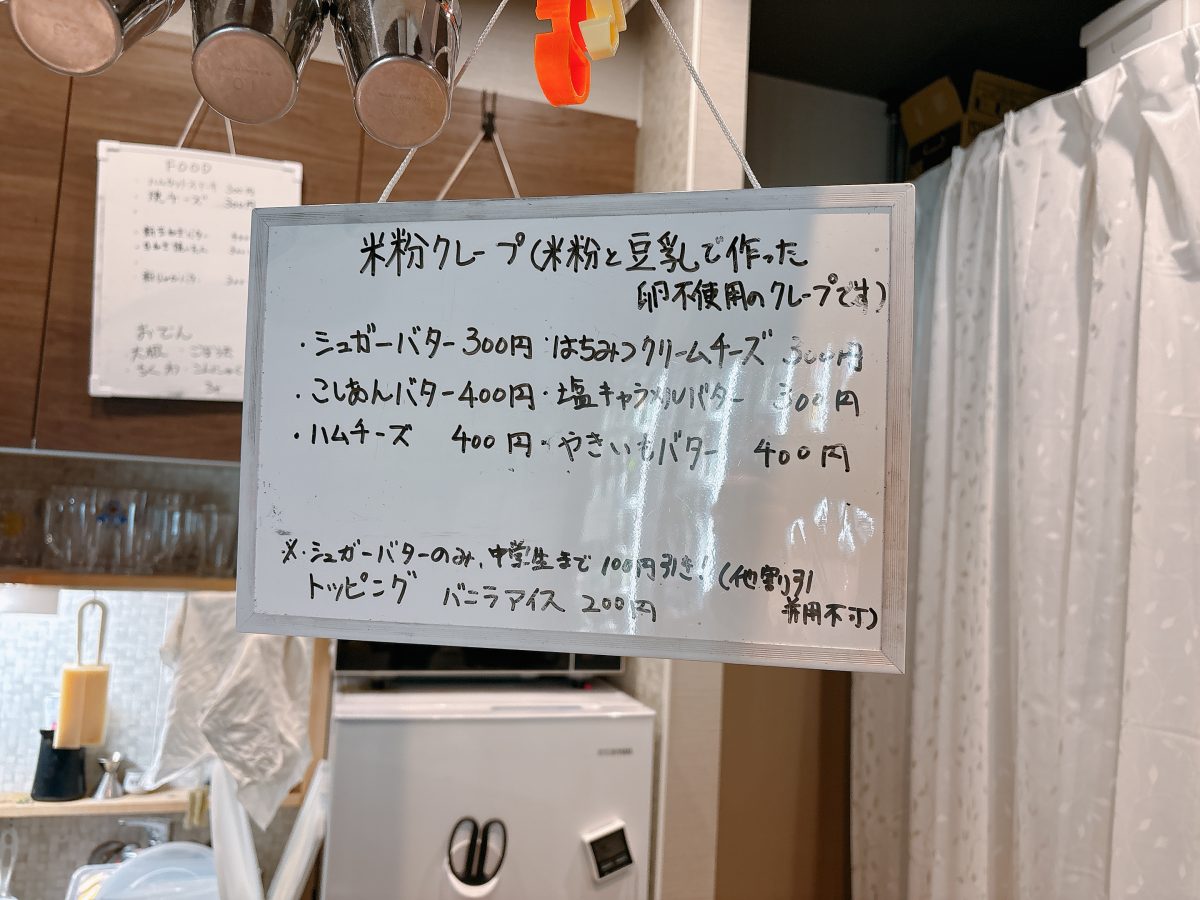 米粉クレープ(米粉と豆乳で作った
卵不使用のクレープです)
・シュガーバター 300円・はちみつクリームチーズ 300円
・こしあんバター 400円・塩キャラメルバター 300円
・ハムチーズ 400円・やきいもバター 400円
※・シュガーバターのみ、中学生まで 100円引き!(他割引
トッピング バニラアイス 200円
併用不可)
FOOD
焼チーズ 300円
おでん